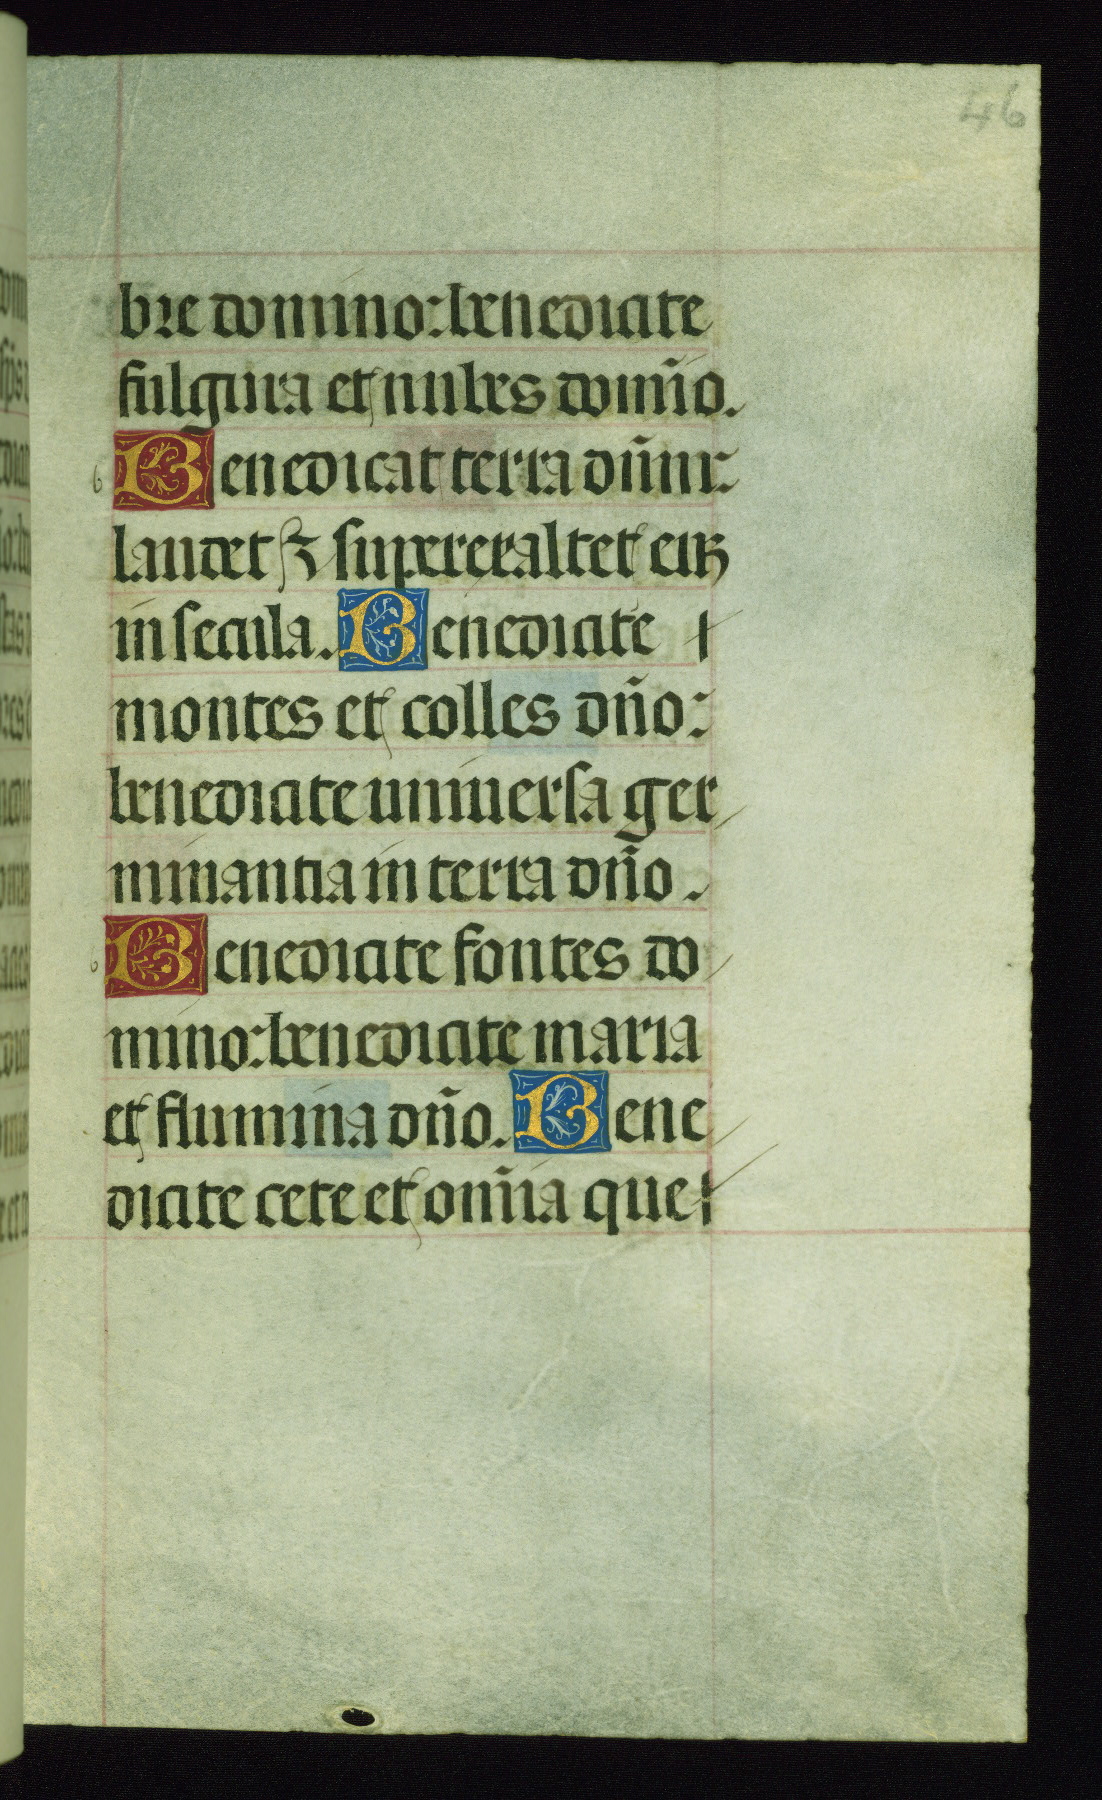 46
bre domino: benedicite
fulgura et nubes domīo.
Benedicat terra dn̄m:
laudet ⁊ superexaltet eū
in secula. Benedicite
montes et colles dn̄o:
benedicite uniuersa ger
minantia in terra dn̄o.
Benedicite fontes do
mino: benedicite maria
et flumina dn̄o. Bene
dicite cete et omīa que